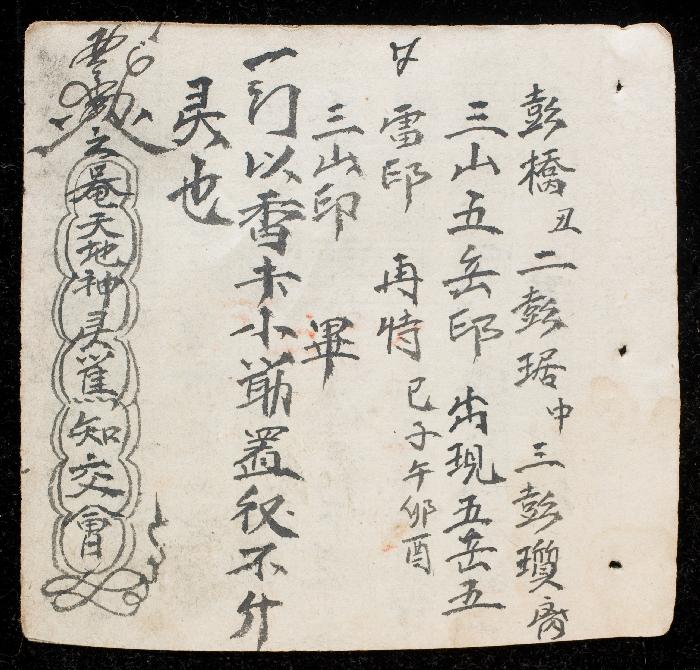 彭橋丑二彭琚中三彭瓊
三山五岳印出現五岳五
雷印再特巳子午卯酉
三山印畢
一行以香卡小置不什
灵也
天地神灵知交會